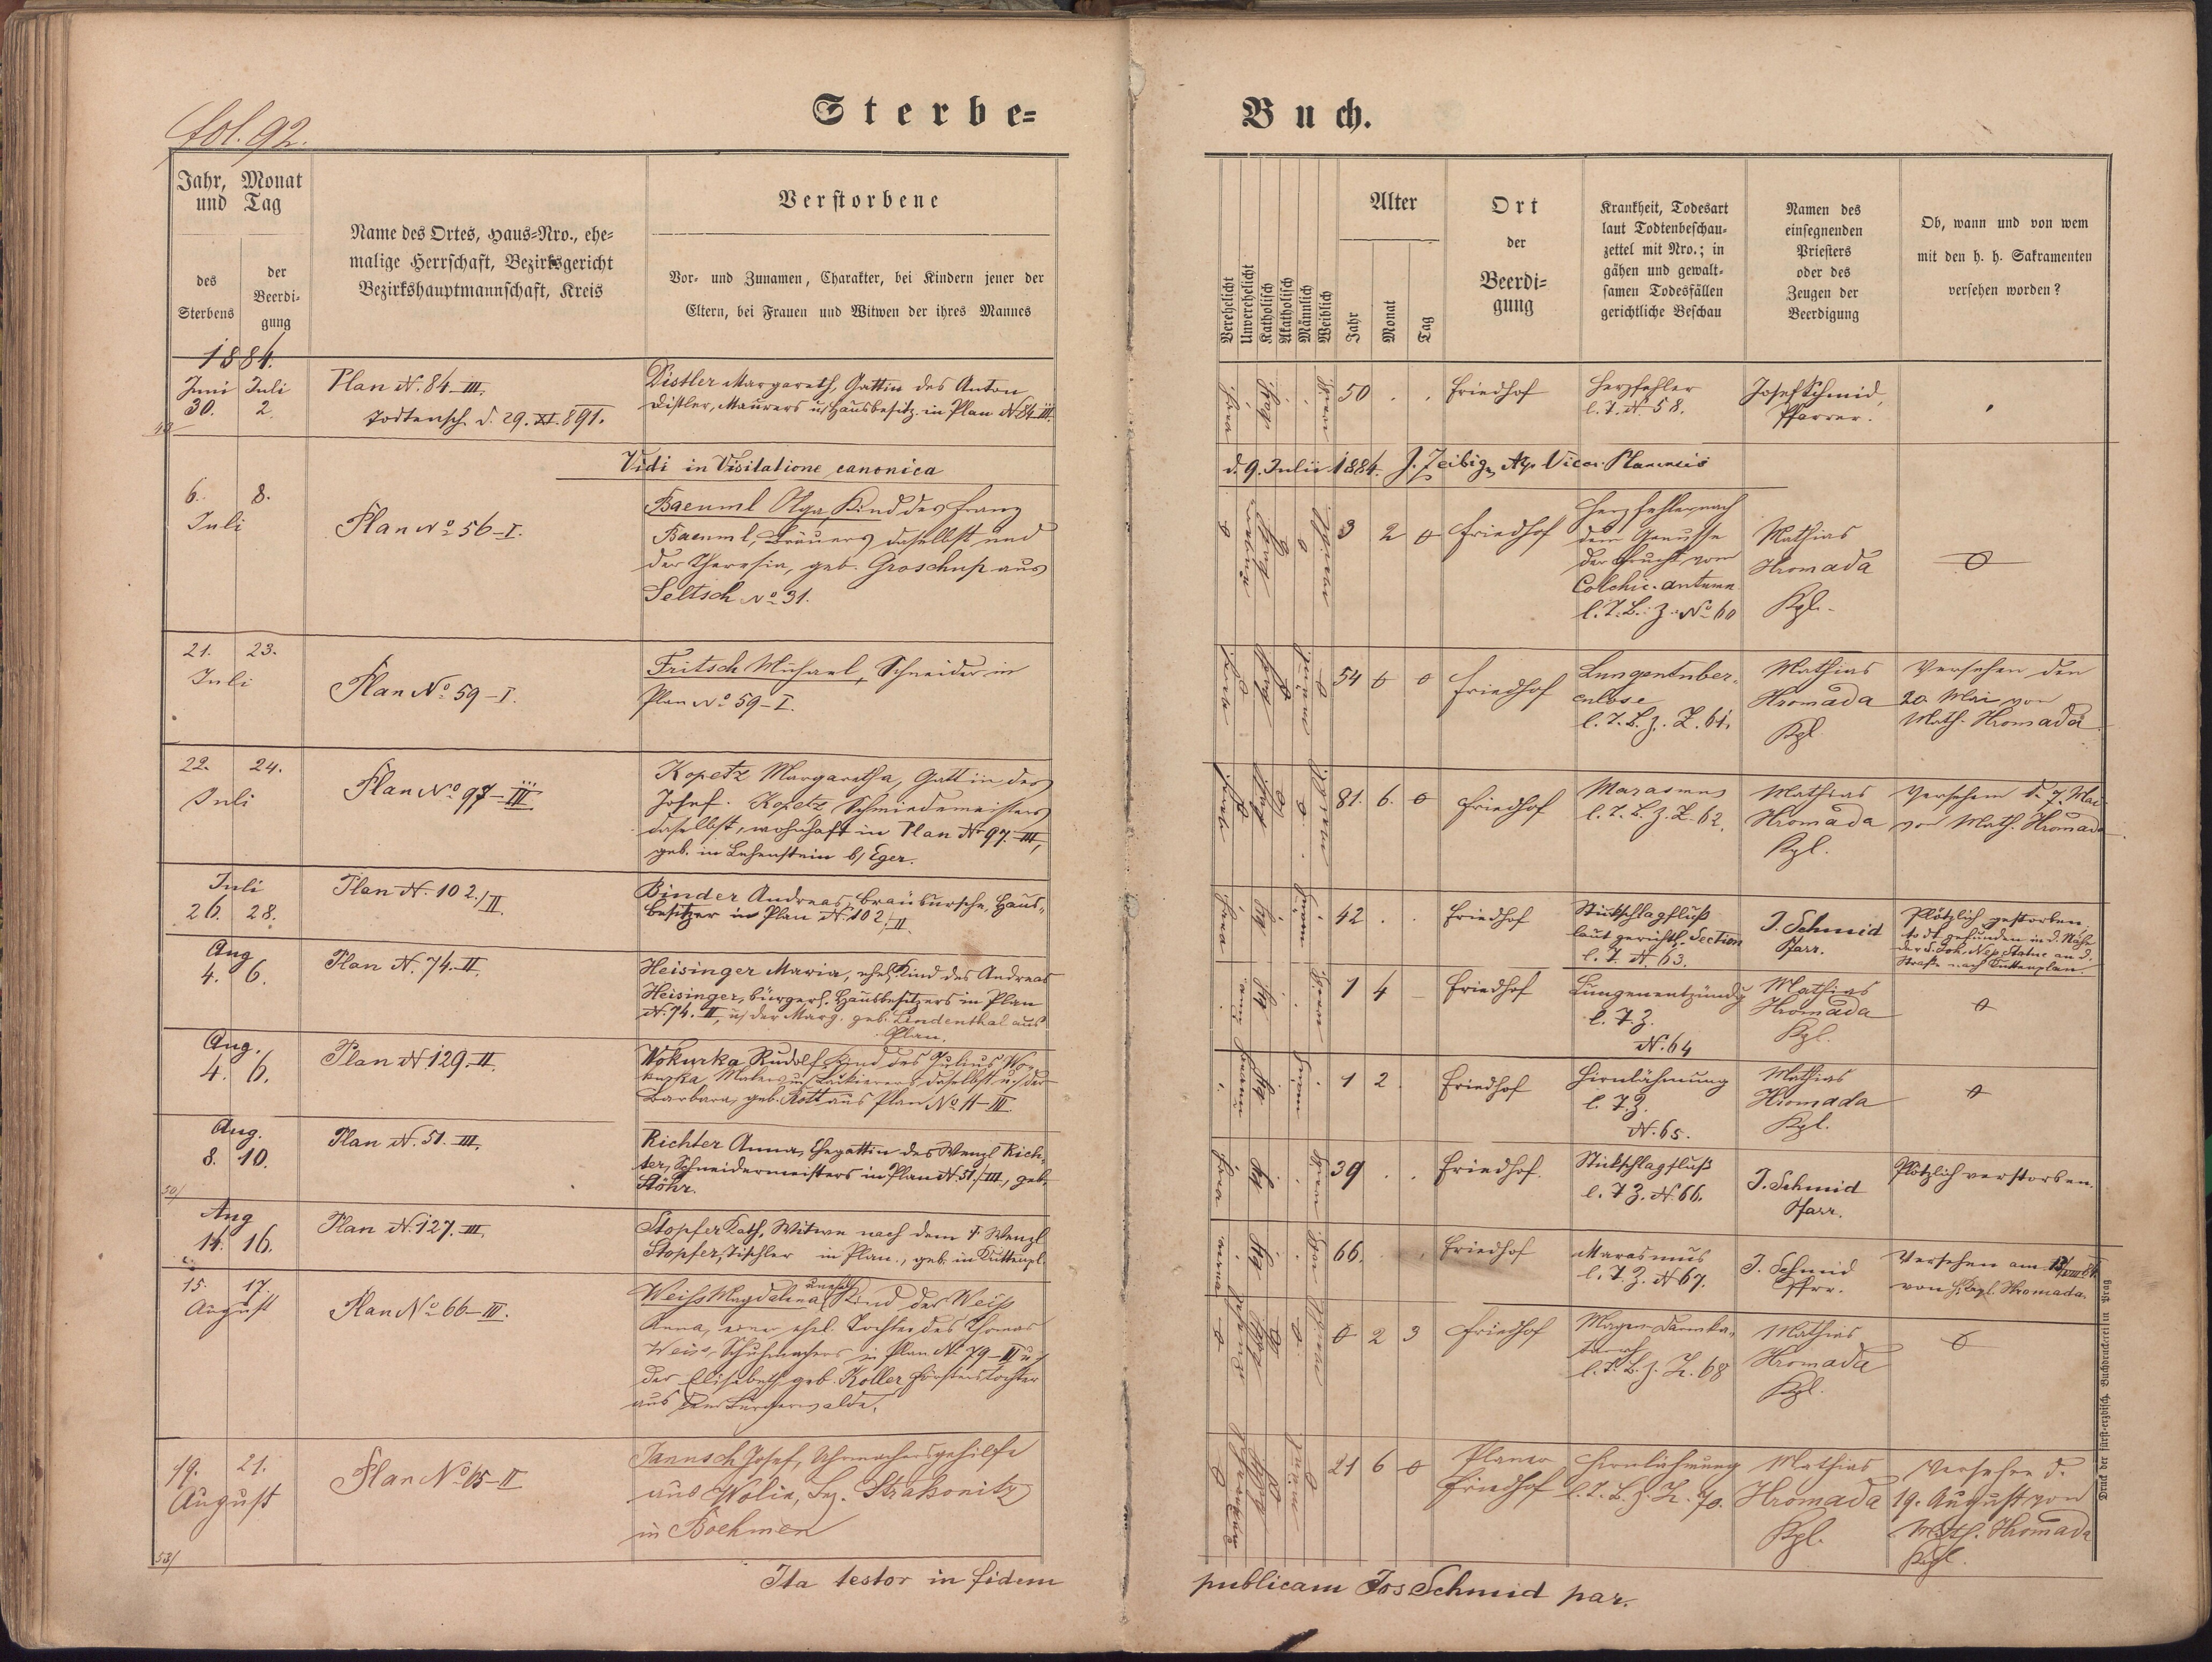 fol. 92.
Sterbe-
Buch.
Jahr, Monat
und Tag
des
Sterbens
der
Beerdi-
gung
Name des Ortes, Haus-Nro., ehe-
malige Herrschaft, Bezirksgericht
Bezirkshauptmannschaft, Kreis
Verstorbene
Vor- und Zunamen, Charakter, bei Kindern jener der
Eltern, bei Frauen und Witwen der ihres Mannes
Verehelicht
Unverehelicht
Katholisch
Akatholisch
Männlich
Weiblich
Alter
Jahr
Monat
Tag
Ort
der
Beerdi-
gung
Krankheit, Todesart
laut Todtenbeschau-
zettel mit Nro.; in
gähen und gewalt-
samen Todesfällen
gerichtliche Beschau
Namen des
einsegnenden
Priesters
oder des
Zeugen der
Beerdigung
Ob, wann und von wem
mit den h. h. Sakramenten
versehen worden?
1884.
Juni Juli
30. 2.
Plan N. 84-III.
Todtensch. d. 29. XI. 891.
Distler Margareth, Gattin des Anton
Distler, Maurers u/ Hausbesitz. in Plan N. 84 III.
50 . .
Friedhof
Herzfehler
l. T. N. 58.
Josef Schmid,
Pfarrer.
Vidi in Visitatione canonica
d. 9. Julii 1884. J. Zeibig, Vicar. Planensis
6. 8.
Juli
Plan No 56-I.
Baeuml Olga, Kind des Franz
Baeuml, Bräuers daselbst und
der Theresia, geb. Groschup aus
Seltsch No 31.
3 2 0
Friedhof
Herzfehler nach
dem Genusse
der Frucht vom
Colchic. autumn
l. T. B. Z. No 60
Mathias
Hromada
Kpl.
0
21. 23.
Juli
Plan No 59-I.
Fritsch Michael, Schneider in
Plan No 59-I.
54 0 0
Friedhof
Lungentuber-
culose
l. T. B. Z. Z. 61.
Mathias
Hromada
Kpl.
Versehen den
20. Mai von
Math. Hromada
22. 24.
Juli
Plan No 97-III
Kopetz Margaretha, Gattin des
Josef Kopetz Schmiedemeisters
daselbst, wohnhaft in Plan No 97-III,
geb. in Lehenstein b/ Eger.
81. 6. 0
Friedhof
Marasmus
l. T. B. Z. Z. 62.
Mathias
Hromada
Kpl.
Versehen d. 7. Mai
von Math. Hromada
Juli
26. 28.
Plan N. 102./II.
Binder Andreas, Bräubursche, Haus-
besitzer in Plan N. 102/II.
42 . .
Friedhof
Stickschlagfluß
laut gerichtl. Section
l. T. N. 63.
J. Schmid
Pfarr.
Plötzlich gestorben,
todt gefunden in d. Nähe
der S. Joh. Nep. Statue an d.
Straße nach Kuttenplan.
Aug
4. 6.
Plan N. 74.-II.
Heisinger Maria, ehel. Kind des Andreas
Heisinger, bürgerl. Hausbesitzers in Plan
N. 74. II, u/ der Marg. geb. Lindenthal aus
Plan.
1 4
Friedhof
Lungenentzündg
l. T. Z.
N. 64
Mathias
Hromada
Kpl.
0
Aug.
4. 6.
Plan N 129.-II.
Wokurka Rudolf, Kind des Julius Wo-
kurka, Malers u/ Lackierers daselbst u/ der
Barbara, geb. Kott aus Plan No 11-III.
1 2
Friedhof
Hirnlähmung
l. T. Z.
N. 65.
Mathias
Hromada
Kpl.
0
Aug.
8. 10.
Plan N. 51. III.
Richter Anna, Ehegattin des Wenzl Rich-
ter, Schneidermeisters in Plan N. 51./III, geb.
Stöhr.
39 . .
Friedhof.
Stickschlagfluß
l. T. Z. N. 66.
J. Schmid
Pfarr.
Plötzlich verstorben.
50/
Aug
14. 16.
Plan N. 127. III.
Stopfer Kath, Witwe nach dem † Wenzl
Stopfer, Tischler in Plan., geb. in Kuttenpl.
66. . .
Friedhof
Marasmus
l. T. Z. N 67.
J. Schmid
Pfrr.
Versehen am
von H. Kapl. Hromada.
15. 17.
August
Plan No 66-III.
Weiss Magdalena, unehel. Kind der Weiß
Anna, einer ehel. Tochter des Thomas
Weiss, Schuhmachers in Plan No 79-III u/
der Elisabeth geb. Koller Försterstochter
aus dem Bürgerwalde.
0 2 3
Friedhof
Magen Darmka-
tarrh
l. T. B. Z. Z. 68
Mathias
Hromada
Kpl.
0
19. 21.
August
Plan No 65-II
Janusch Josef, Uhrmachersgehilfe
aus Wolin, Bez. Strakonitz
in Boehmen
21 6 0
Planer
Friedhof
Hirnlähmung
l. T. B. Z. Z. 70.
Mathias
Hromada
Kpl.
Versehen d.
19. August von
Math. Hromada
Kpl.
53/
Ita testor in fidem
publicam Jos Schmid par.
Druck der fürst-erzbisch. Buchdruckerei in Prag